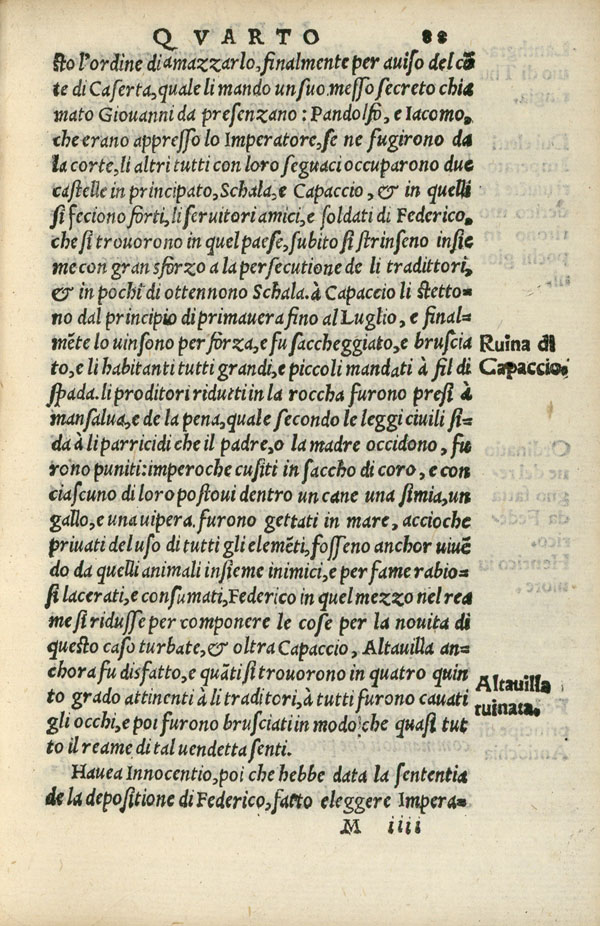 QVARTO 88
sto l'ordine di amazzarlo, finalmente per auiso del cõ
te di Caserta, quale li mando un suo messo secreto chia
mato Giouanni da presenzano: Pandolfo, e Iacomo,
che erano appresso lo Imperatore, se ne fugirono da
la corte, li altri tutti con loro seguaci occuparono due
castelle in principato, Schala, e Capaccio, & in quelli
si feciono forti, li seruitori amici, e soldati di Federico,
che si trouorono in quel paese, subito si strinseno insie
me con gran sforzo a la persecutione de li tradittori,
& in pochi di ottennono Schala. à Capaccio li stetto=
no dal principio di primauera fino al Luglio, e final=
mẽte lo uinsono per forza, e fu saccheggiato, e bruscia
to, e li habitanti tutti grandi, e piccoli mandati à fil di
spada. li proditori ridutti in la roccha furono presi à
mansalua, e de la pena, quale secondo le leggi ciuili si=
da à li parricidi che il padre, o la madre occidono, fu
rono puniti: imperoche cusiti in saccho di coro, e con
ciascuno di loro postoui dentro un cane una simia, un
gallo, e una uipera. furono gettati in mare, accioche
priuati del uso di tutti gli elemẽti, fosseno anchor uiuẽ
do da quelli animali insieme inimici, e per fame rabio=
si lacerati, e consumati, Federico in quel mezzo nel rea
me si ridusse per componere le cose per la nouita di
questo caso turbate, & oltra Capaccio, Altauilla an=
chora fu disfatto, e quãti si trouorono in quatro quin
to grado attinenti à li traditori, à tutti furono cauati
gli occhi, e poi furono brusciati in modo che quasi tut
to il reame di tal uendetta senti.
Hauea Innocentio, poi che hebbe data la sententia
de la depositione di Federico, fatto eleggere Impera=
M iiii
Ruina di
Capaccio.
Altauilla
ruinata.